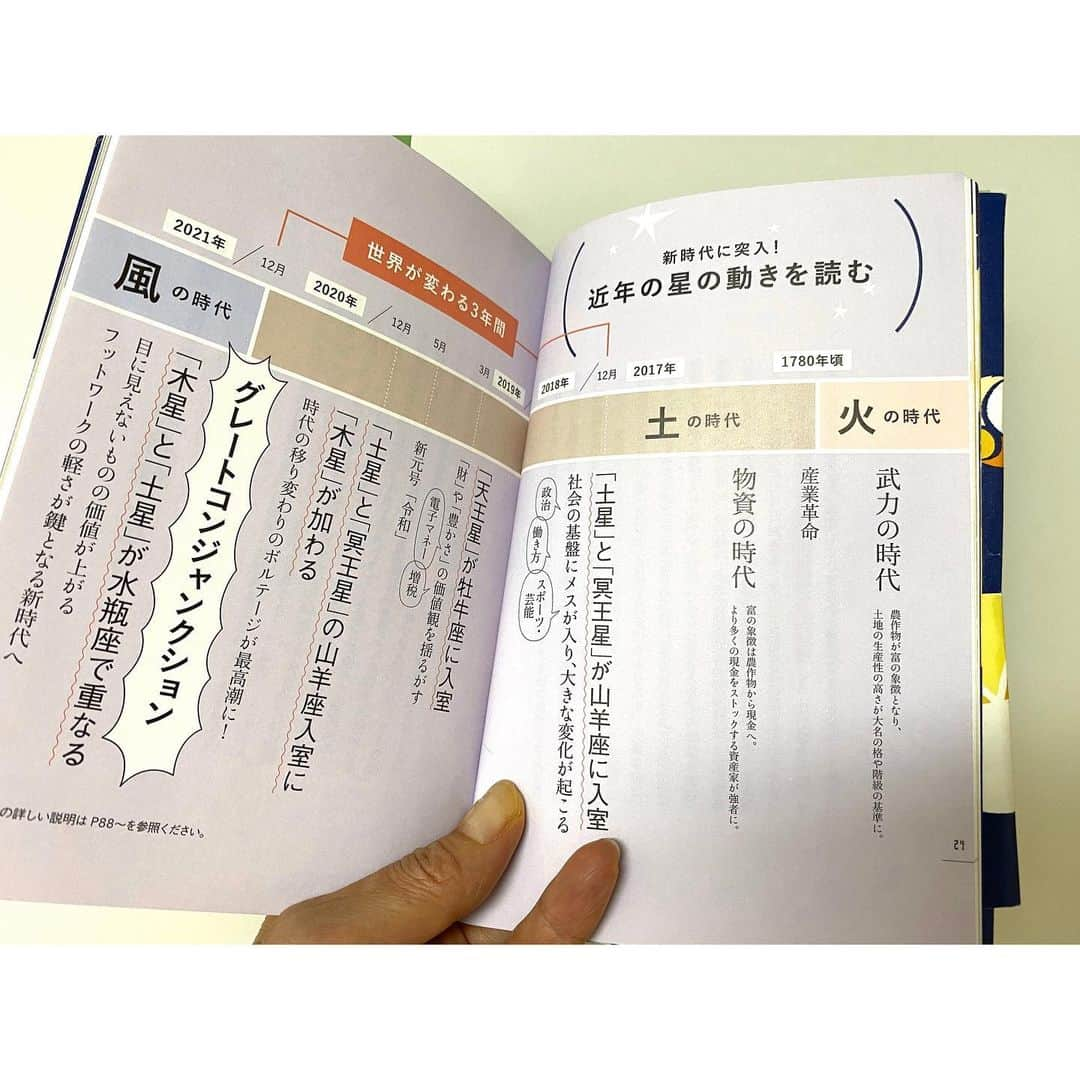 新時代に突入！
近年の星の動きを読む
1780年頃
2017年
12月
2018年
火の時代
土の時代
武力の時代
農作物が富の象徴となり、
土地の生産性の高さが大名の格や階級の基準に。
産業革命
物資の時代
富の象徴は農作物から現金へ。
より多くの現金をストックする資産家が強者に。
「土星」と「冥王星」が山羊座に入室
社会の基盤にメスが入り、大きな変化が起こる
政治
働き方
スポーツ・
芸能
27
世界が変わる3年間
2019年
3月
5月
12月
2020年
12月
2021年
風の時代
「天王星」が牡牛座に入室
「財」や「豊かさ」の価値観を揺るがす
電子マネー
増税
新元号「令和」
「土星」と「冥王星」の山羊座入室に
「木星」が加わる
時代の移り変わりのボルテージが最高潮に！
グレートコンジャンクション
「木星」と「土星」が水瓶座で重なる
目に見えないものの価値が上がる
フットワークの軽さが鍵となる新時代へ
の詳しい説明は P88〜を参照ください。